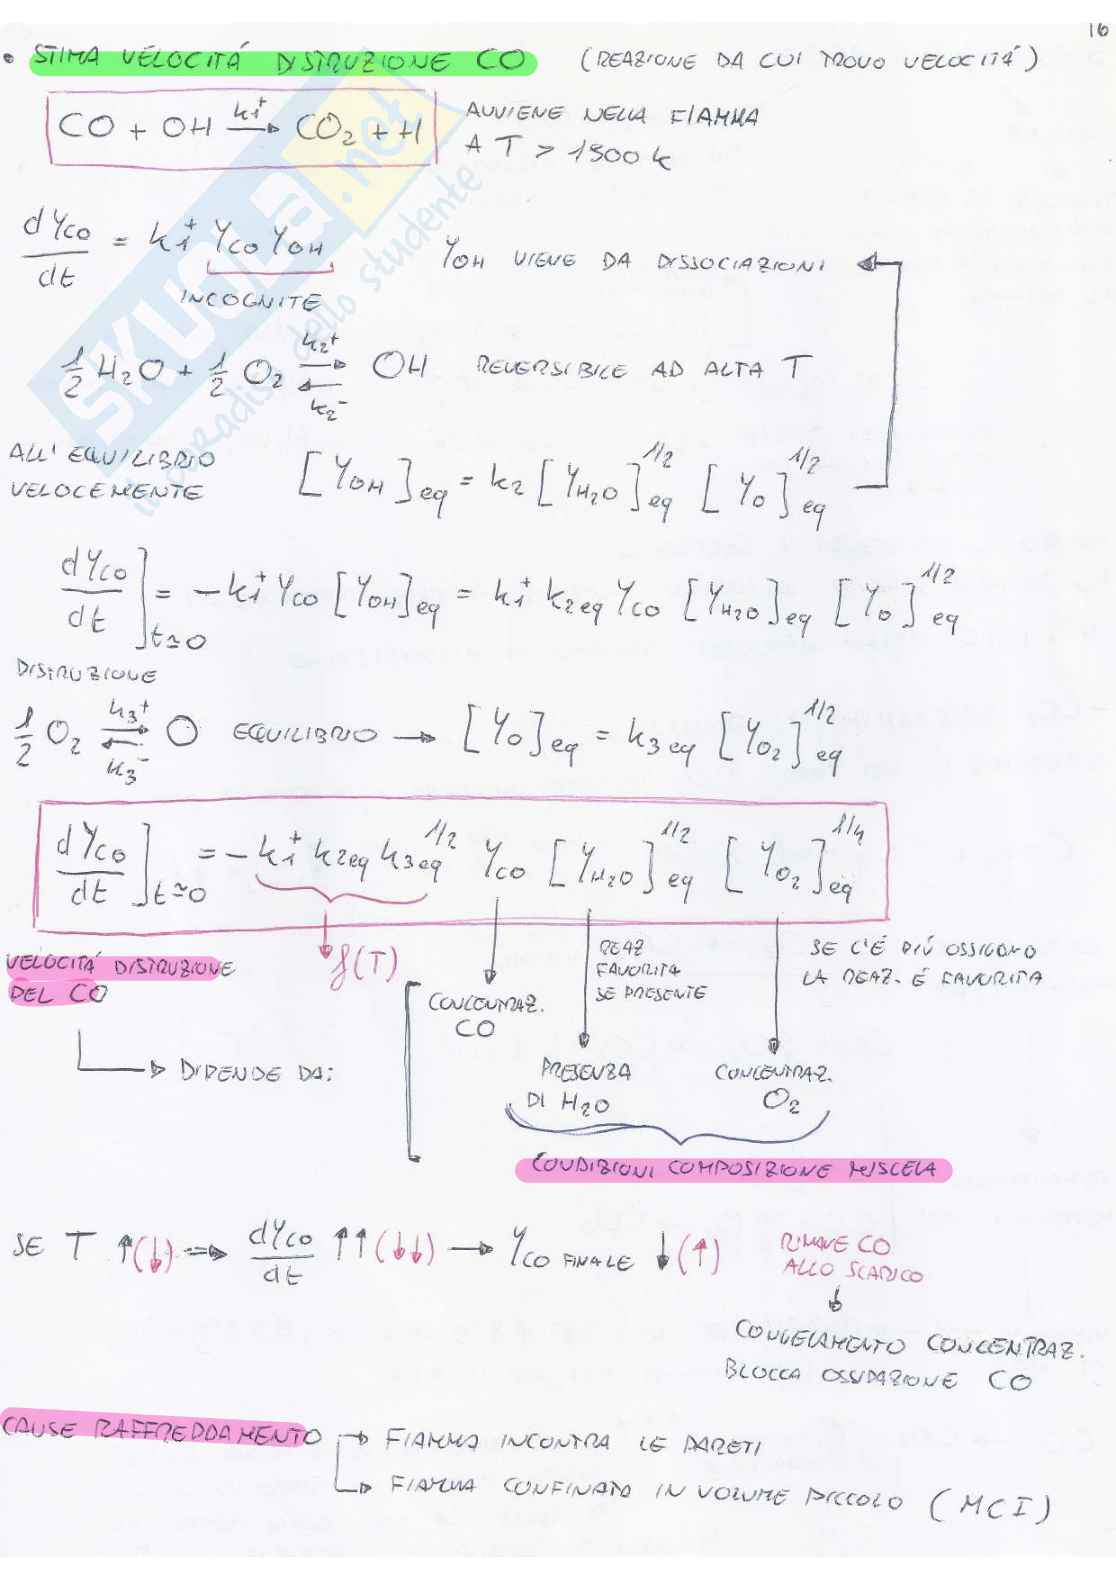 16
• STIMA VELOCITÁ DISTRUZIONE CO (REAZIONE DA CUI TROVO VELOCITÁ)
CO + OH —k1⁺→ CO2 + H AVVIENE NELLA FIAMMA
A T > 1500 K
dYCO/dt = k1⁺ YCO YOH YOH VIENE DA DISSOCIAZIONI
INCOGNITE
1/2 H2O + 1/2 O2 ⇄ (k2⁺, k2⁻) OH REVERSIBILE AD ALTA T
ALL' EQUILIBRIO
VELOCEMENTE [YOH]eq = k2 [YH2O]eq^1/2 [YO]eq^1/2
dYCO/dt]t≃0 = -k1⁺ YCO [YOH]eq = k1⁺ k2eq YCO [YH2O]eq [YO]eq^1/2
DISTRUZIONE
1/2 O2 ⇄ (k3⁺, k3⁻) O EQUILIBRIO → [YO]eq = k3eq [YO2]eq^1/2
dYCO/dt]t≃0 = -k1⁺ k2eq k3eq^1/2 YCO [YH2O]eq^1/2 [YO2]eq^1/4
VELOCITÁ DISTRUZIONE
DEL CO
f(T)
REAZ
FAVORITA
SE PRESENTE
SE C'É PIÚ OSSIGENO
LA REAZ. É FAVORITA
CONCENTRAZ.
CO
→ DIPENDE DA:
PRESENZA
DI H2O
CONCENTRAZ.
O2
CONDIZIONI COMPOSIZIONE MISCELA
SE T ↑(↓) ⇒ dYCO/dt ↑↑(↓↓) → YCO FINALE ↓(↑) RIMANE CO
ALLO SCARICO
↓
CONGELAMENTO CONCENTRAZ.
BLOCCA OSSIDAZIONE CO
CAUSE RAFFREDDAMENTO → FIAMMA INCONTRA LE PARETI
→ FIAMMA CONFINATA IN VOLUME PICCOLO (MCI)
SKUOLA.net
il paradiso dello studente